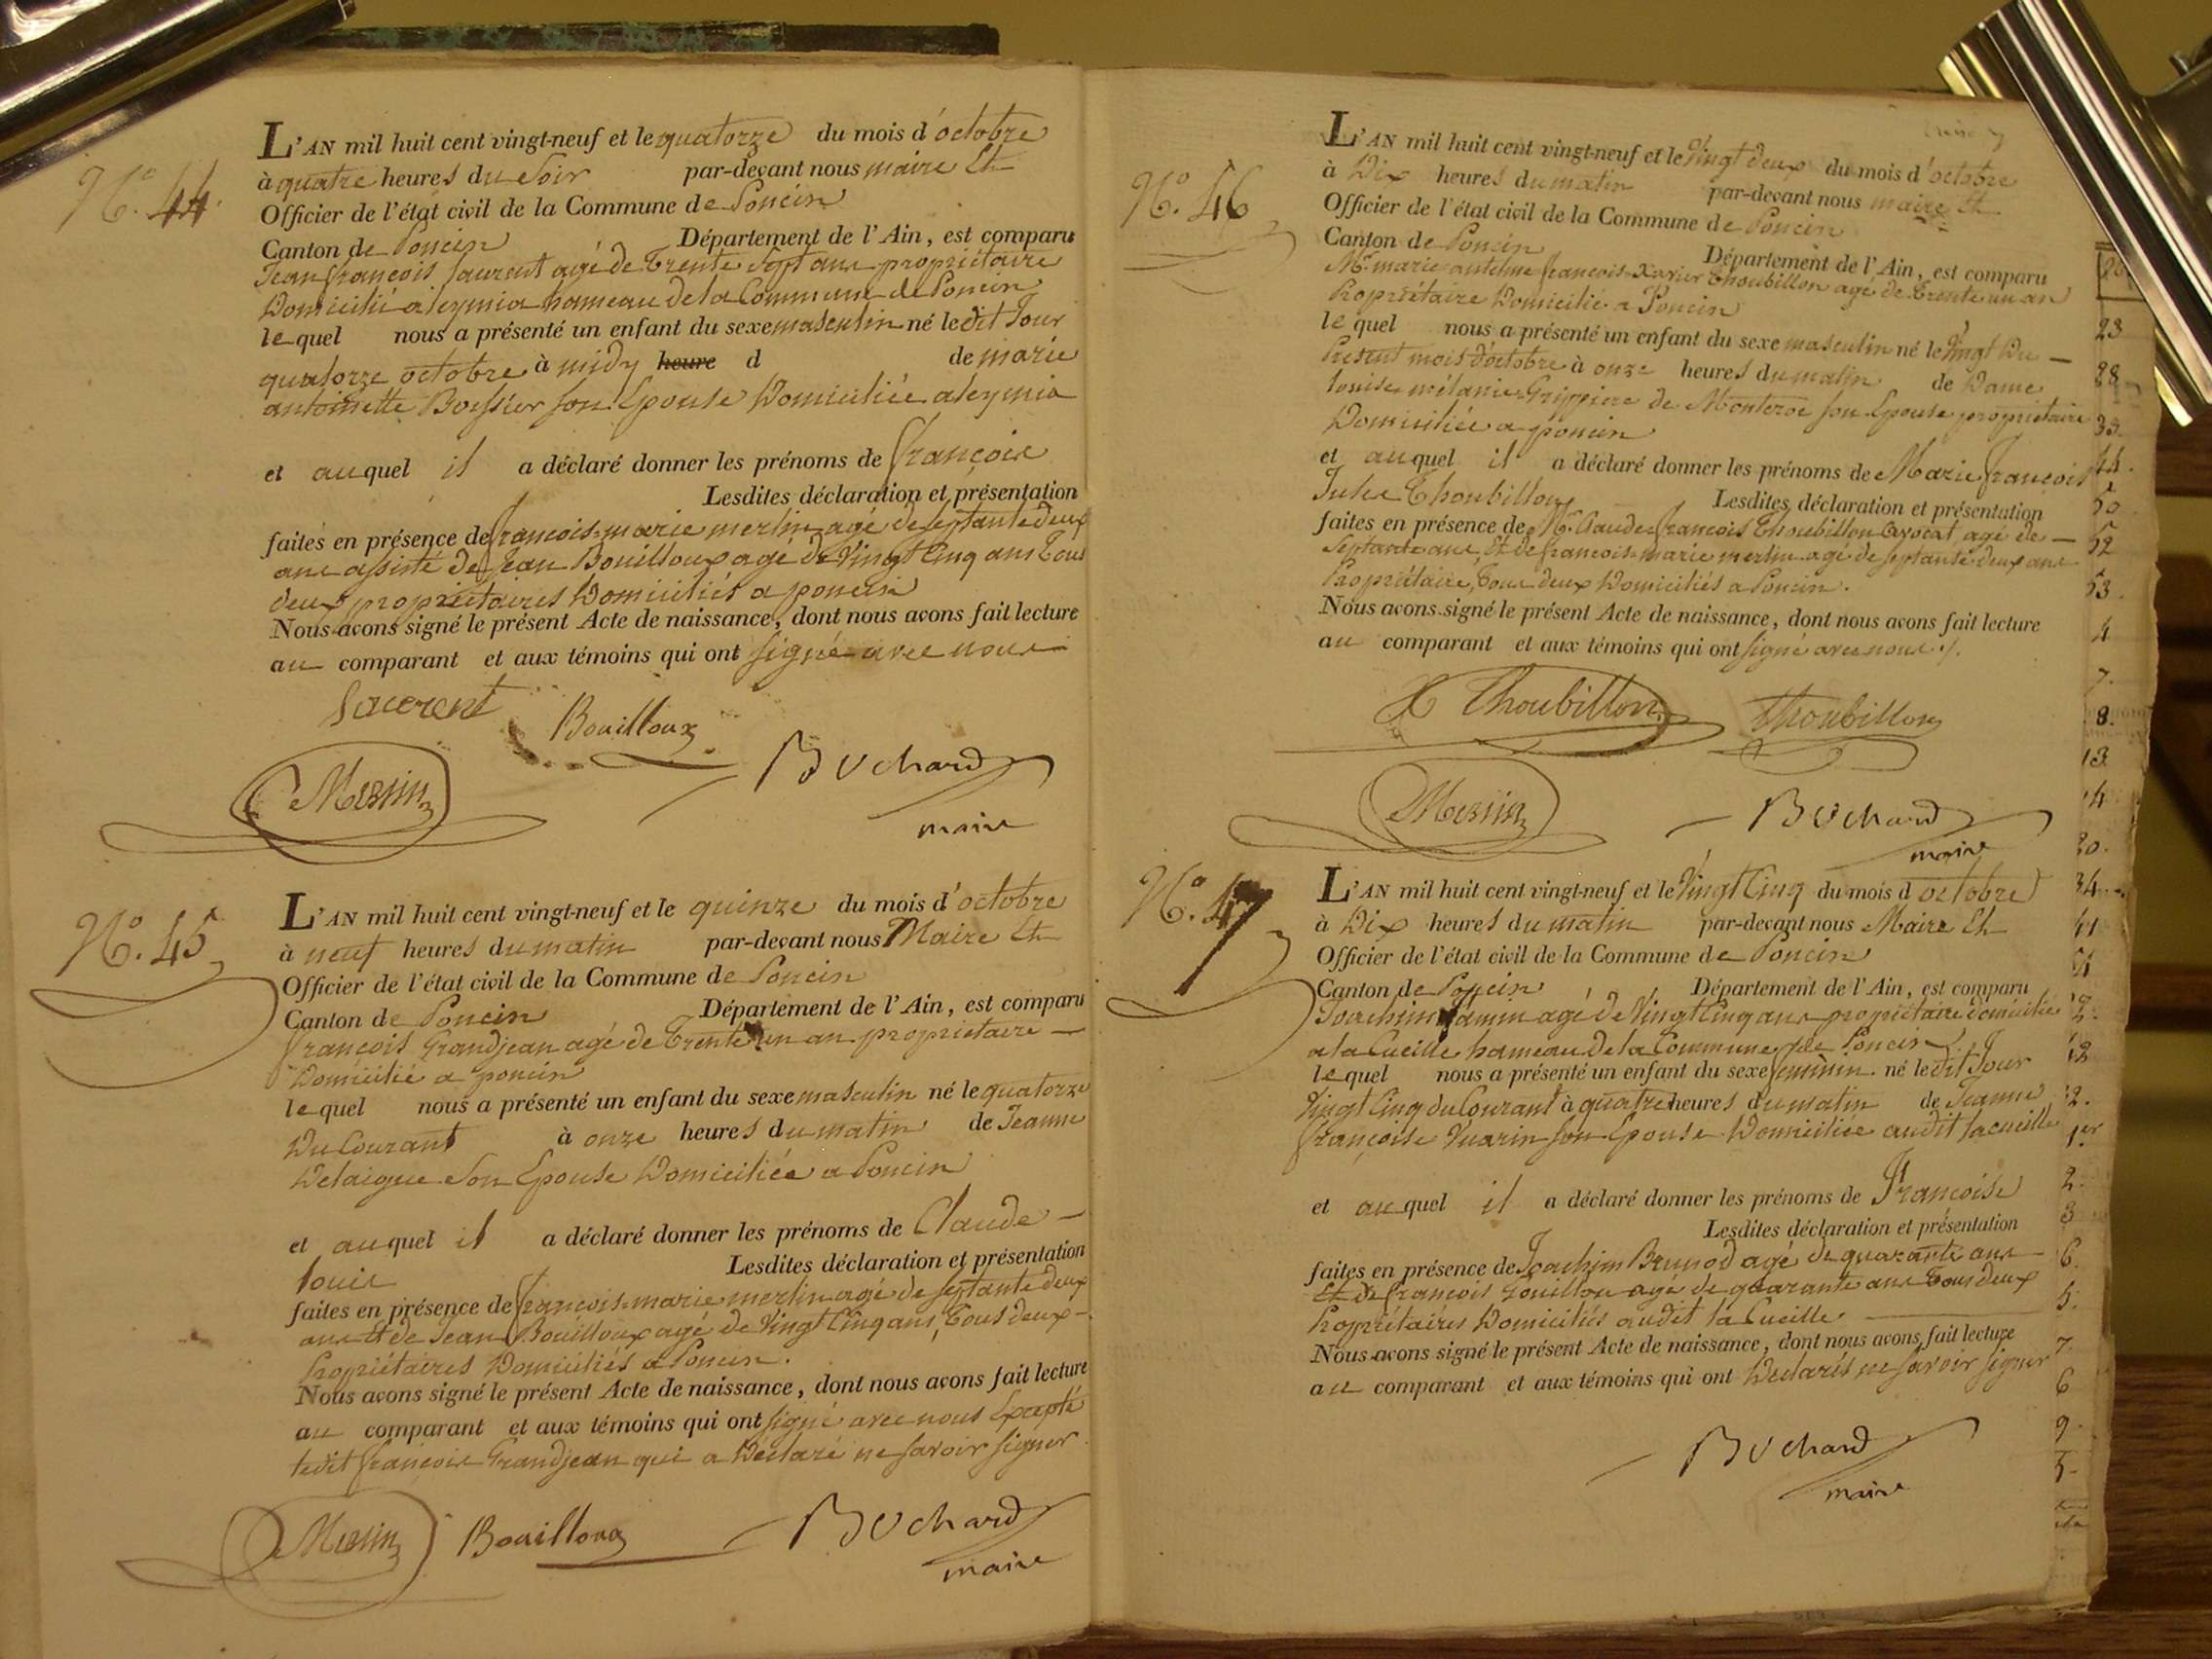 N.º 44.
L'AN mil huit cent vingt-neuf et le quatorze du mois d'octobre
à quatre heures du Soir par-devant nous maire Et
Officier de l'état civil de la Commune de Poncin
Canton de Poncin Département de l'Ain, est comparu
Jean françois Laurent agé de trente Sept ans propriétaire
Domicilié a leymia hameau de la Commune de Poncin
lequel nous a présenté un enfant du sexe masculin né ledit Jour
quatorze octobre à midy heure d de marie
antoinette Boissier son Epouse Domiciliée a leymia
et auquel il a déclaré donner les prénoms de françois
Lesdites déclaration et présentation
faites en présence de françois-marie merlin agé de septante deux
ans assisté de Jean Bouilloux agé de Vingt Cinq ans tous
deux propriétaires Domiciliés a poncin
Nous avons signé le présent Acte de naissance, dont nous avons fait lecture
au comparant et aux témoins qui ont signé avec nous
Laurent
Bouilloux
Bochard
Merlin
maire
N.º 45
L'AN mil huit cent vingt-neuf et le quinze du mois d'octobre
à neuf heures du matin par-devant nous Maire Et
Officier de l'état civil de la Commune de Poncin
Canton de Poncin Département de l'Ain, est comparu
françois Grandjean agé de trente un an propriétaire
Domicilié a poncin
lequel nous a présenté un enfant du sexe masculin né le quatorze
Du Courant à onze heures du matin de Jeanne
Delaigue Son Epouse Domiciliée a Poncin
et auquel il a déclaré donner les prénoms de Claude
louis Lesdites déclaration et présentation
faites en présence de françois-marie merlin agé de septante deux
ans Et de Jean Bouilloux agé de Vingt Cinq ans, tous deux
Propriétaires Domiciliés a Poncin.
Nous avons signé le présent Acte de naissance, dont nous avons fait lecture
au comparant et aux témoins qui ont signé avec nous Excepté
ledit françois Grandjean qui a Déclaré ne savoir signer
Merlin
Bouilloux
Bochard
maire
N.º 46
L'AN mil huit cent vingt-neuf et le Vingt deux du mois d'octobre
à Dix heures du matin par-devant nous maire Et
Officier de l'état civil de la Commune de Poncin
Canton de Poncin Département de l'Ain, est comparu
Mr. marie anthelme françois-Xavier Thoubillon agé de trente un an
Propriétaire Domicilié a Poncin
lequel nous a présenté un enfant du sexe masculin né le Vingt Du
Présent mois d'octobre à onze heures du matin de Dame
louise mélanie Grippiere de Monteroc son Epouse propriétaire
Domiciliée a poncin
et auquel il a déclaré donner les prénoms de Marie françois
Jules Thoubillon Lesdites déclaration et présentation
faites en présence de Mr. Claude françois Thoubillon avocat agé de
Septante ans, Et de francois-marie merlin agé de septante deux ans
Propriétaire, tous deux Domiciliés a Poncin.
Nous avons signé le présent Acte de naissance, dont nous avons fait lecture
au comparant et aux témoins qui ont signé avec nous ./.
X Thoubillon
Thoubillon
Merlin
Bochard
maire
N.º 47
L'AN mil huit cent vingt-neuf et le Vingt Cinq du mois d octobre
à Dix heures du matin par-devant nous Maire Et
Officier de l'état civil de la Commune de Poncin
Canton de Poncin Département de l'Ain, est comparu
Joachim agé de Vingt Cinq ans propriétaire domicilié
a la Cueille hameau de la Commune de Poncin
lequel nous a présenté un enfant du sexe féminin né ledit Jour
Vingt Cinq du Courant à quatre heures du matin de Jeanne
françoise Vuarin son Epouse Domiciliée audit lacueille
et auquel il a déclaré donner les prénoms de Françoise
Lesdites déclaration et présentation
faites en présence de Joachim Brunod agé de quarante ans
Et de françois Gouilloux agé de quarante ans tous deux
Propriétaires Domiciliés audit la Cueille
Nous avons signé le présent Acte de naissance, dont nous avons fait lecture
au comparant et aux témoins qui ont Déclarés ne savoir signer
Bochard
maire
23
28
39.
44.
50
52
53.
4
7.
8.
13
14
20.
34
41
2.
1er
2.
3
6.
5.
7.
6
9.
5.